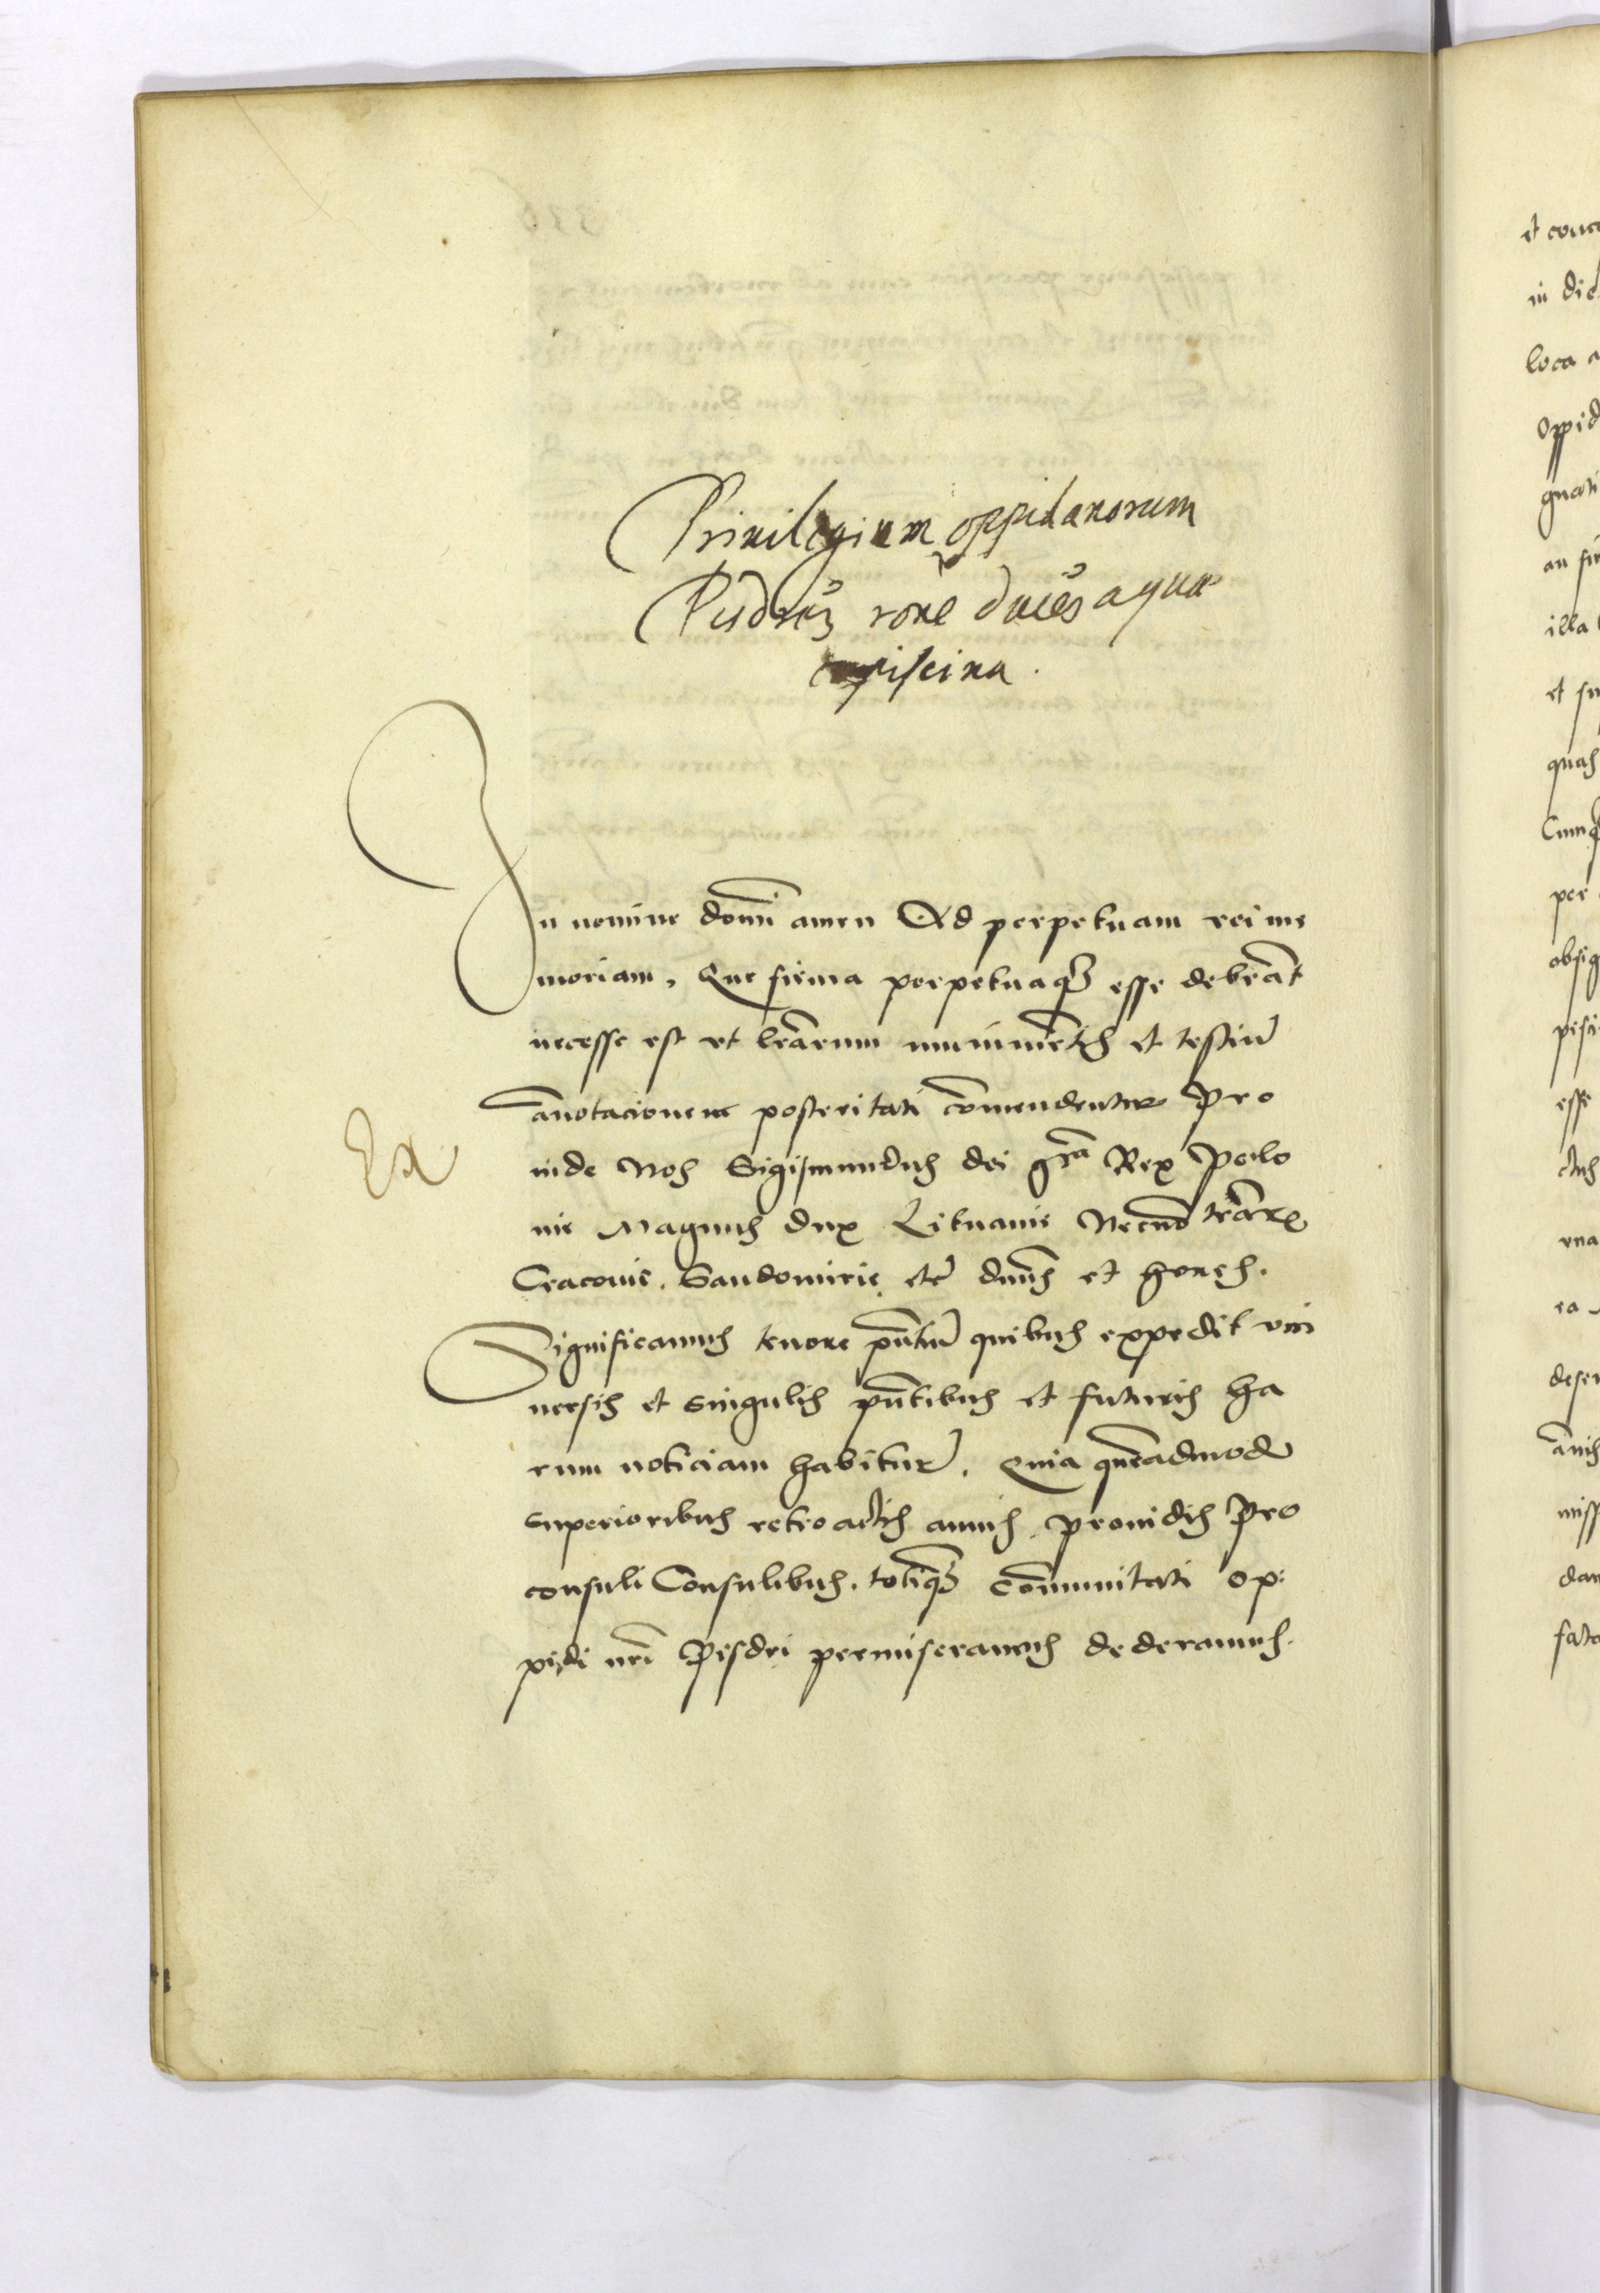 Priuilegium oppidanorum
Pisdris rone aque
piscina.
In nomine domi amen Ad perpetuam rei me
moriam, Que firma perpetuaq3 esse debeat
necesse est vt lrarum munimetis et testiu
anotacionem posteritati comendentur Pro
inde Nos Sigismundus dei gra Rex Polo
nie Magnus dux Lituanie Necno terrar
Cracouie. Sandomirie etc dnus et heres.
Ex
Significamus tenore pntiu quibus expedit vni
uersis et singulis pntibus et futuris ha
rum noticiam habitur. Quia queadmodu
superioribus retroactis annis prouidis Pro
consuli Consulibus. totiq3 comunitati op:
pidi nri Pisdri permiseramus dederamus.
et conc
in dic
loca a
Oppid
gnati
an
illa
et
quas
Cumq
per
obsig
pisci
esse
ctus
una
ea
deser
annis
miss
dan
fata